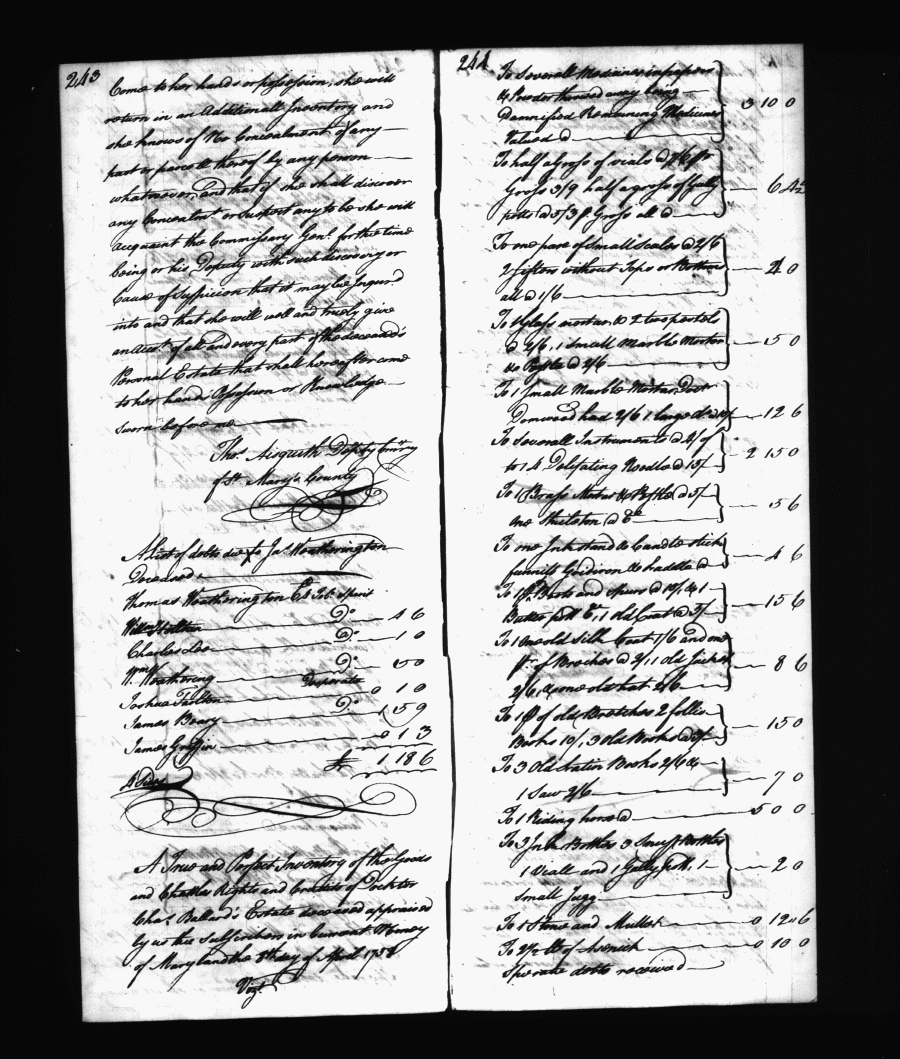 243
Come to her hands or possession, she will
return in an Additionall Inventory and
she knows of No Concealment of any
part or parcell thereof by any person
whatsoever, and that if she shall discover
any Concealmt or suspect any to be she will
acquaint the Commissary Genl. for the time
being or his Deputy with such discovery or
Cause of Suspicion that it may be Inquird
into and that she will well and truely give
an acct. of all and every part of the deceased's
Personal Estate that shall hereafter come
to her hands Possession or Knowledge
sworn before me
Thos. Aisquith Depty Comry
of St. Mary's County
A List of debts due to Jas. Weatherington
Deceased
Thomas Weatherington
Willm Hilton Do. 4 6
Charles Lee Do. 1 0
Wm. Weathering Do. 15 0
Joshua Tarlton Desperate 0 1 0
James Beary Do. 15 9
James Griffin 0 1 3
£ 1 18 6
A True and Perfect Inventory of the Goods
and Chattles Rights and Credits of Docktor
Chas. Ballard's Estate deceased appraised
by us the Subscribers in Current Money
of Maryland the 8th day of April 1758
Vizt.
244
To Severall Medicines in papers
& Powder throwed away being
Damnified Remaining Medicines 3 10 0
Valued @
To half a Gross of vials @
Gross 3/9 half a gross of Gally 6 4½
potts @ 5/3 Gross all @
To one pare of Small Scales @ 2/6
2 sifters without Tops or Bottoms 4 0
all @ 1/6
To 1 glass mortar & 2 two pestels
@ 2/6, 1 Small Marble Mortar 15 0
& Pestle @ 2/6
To 1 Small Marble Mortar
2/6 1 large do @ 12 6
To Severall Instruments @
to 14 Needles @ 15/ 2 15 0
To 1 Brass Mortar & Pestle @ 5/
one Skeleton @ 5 6
To one Ink stand & Candle stick
Gridiron & 4 6
To 1 pr. Boots and Spurs @ 10/, & 1
Butter pott 1 old Coat @ 5/ 15 6
To 1 one old Silk Coat 1/6 and one
pr. of Breeches @ 2/, 1 old Jacket 8 6
2/6, & one old hat 2/6
To 1 pr of old Breeches 2 follio
Books 10/, 3 old Books @ 15 0
To 3 Old Latin Books 2/6 &
1 Saw 2/6 7 0
To 1 Riding horse @ 5 0 0
To 3 Ink Bottles 3 Snuff Bottles
1 Viall and 1 Gally pott, 1 2 0
Small Jugg
To 1 Stone and Muller 0 12 6
To 2½ lb of Arsnick 0 10 0
Sperate debts received